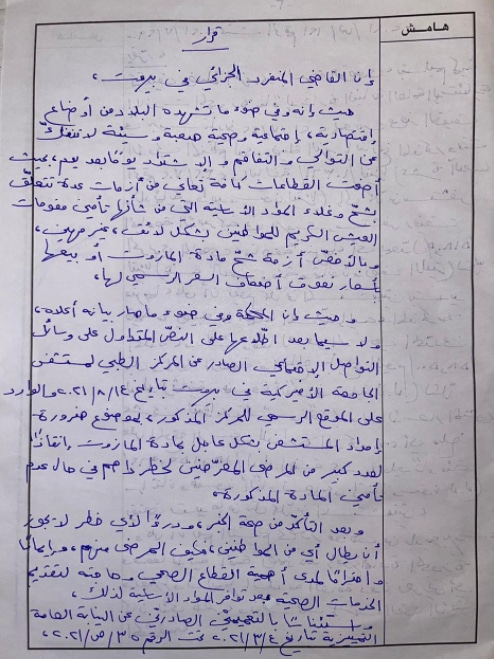 هامش
قرار
إن القاضي المنفرد الجزائي في بيروت،
حيث إنه وفي ضوء ما تشهده البلاد من أوضاع
إقتصادية، إجتماعية وصحية صعبة وسيئة لا تنفكّ
عن التوالي والتفاقم والإشتداد يومًا بعد يوم، بحيث
أضحت القطاعات كافة تُعاني من أزمات عدة تتعلّق
بشحّ وغلاء المواد الأساسية التي من شأنها تأمين مقومات
العيش الكريم للمواطنين بشكل لائق، غير مهين،
وبالأخصّ أزمة شحّ مادة المازوت أو بيعها
بأسعار تفوق أضعاف السعر الرسمي لها،
وحيث إن المحكمة وفي ضوء ما صار بيانه أعلاه،
ولا سيما بعد اطّلاعها على النصّ المتداول على وسائل
التواصل الإجتماعي الصادر عن المركز الطبي لمستشفى
الجامعة الأميركية في بيروت بتاريخ ٢٠٢١/٨/١٤ والوارد
على الموقع الرسمي للمركز المذكور، بموضوع ضرورة
إمداد المستشفى بشكل عاجل بمادة المازوت إنقاذًا
لعدد كبير من المرضى المعرّضين لخطر داهم في حال عدم
تأمين المادة المذكورة.
وبعد التأكّد من صحة الخبر، ودرءًا لأي خطر لا يجوز
أن يطال أي من المواطنين، فكيف المرضى منهم، وإيمانًا
واحترامًا لمدى أهمية القطاع الصحي وحاجته لتقديم
الخدمات الصحية بعد توافر المواد الأساسية لذلك،
واستئناسًا بالتعميمين الصادرين عن النيابة العامة
التمييزية تاريخ ٢٠٢١/٣/٤ تحت الرقم ٣٥/ص/٢٠٢١،